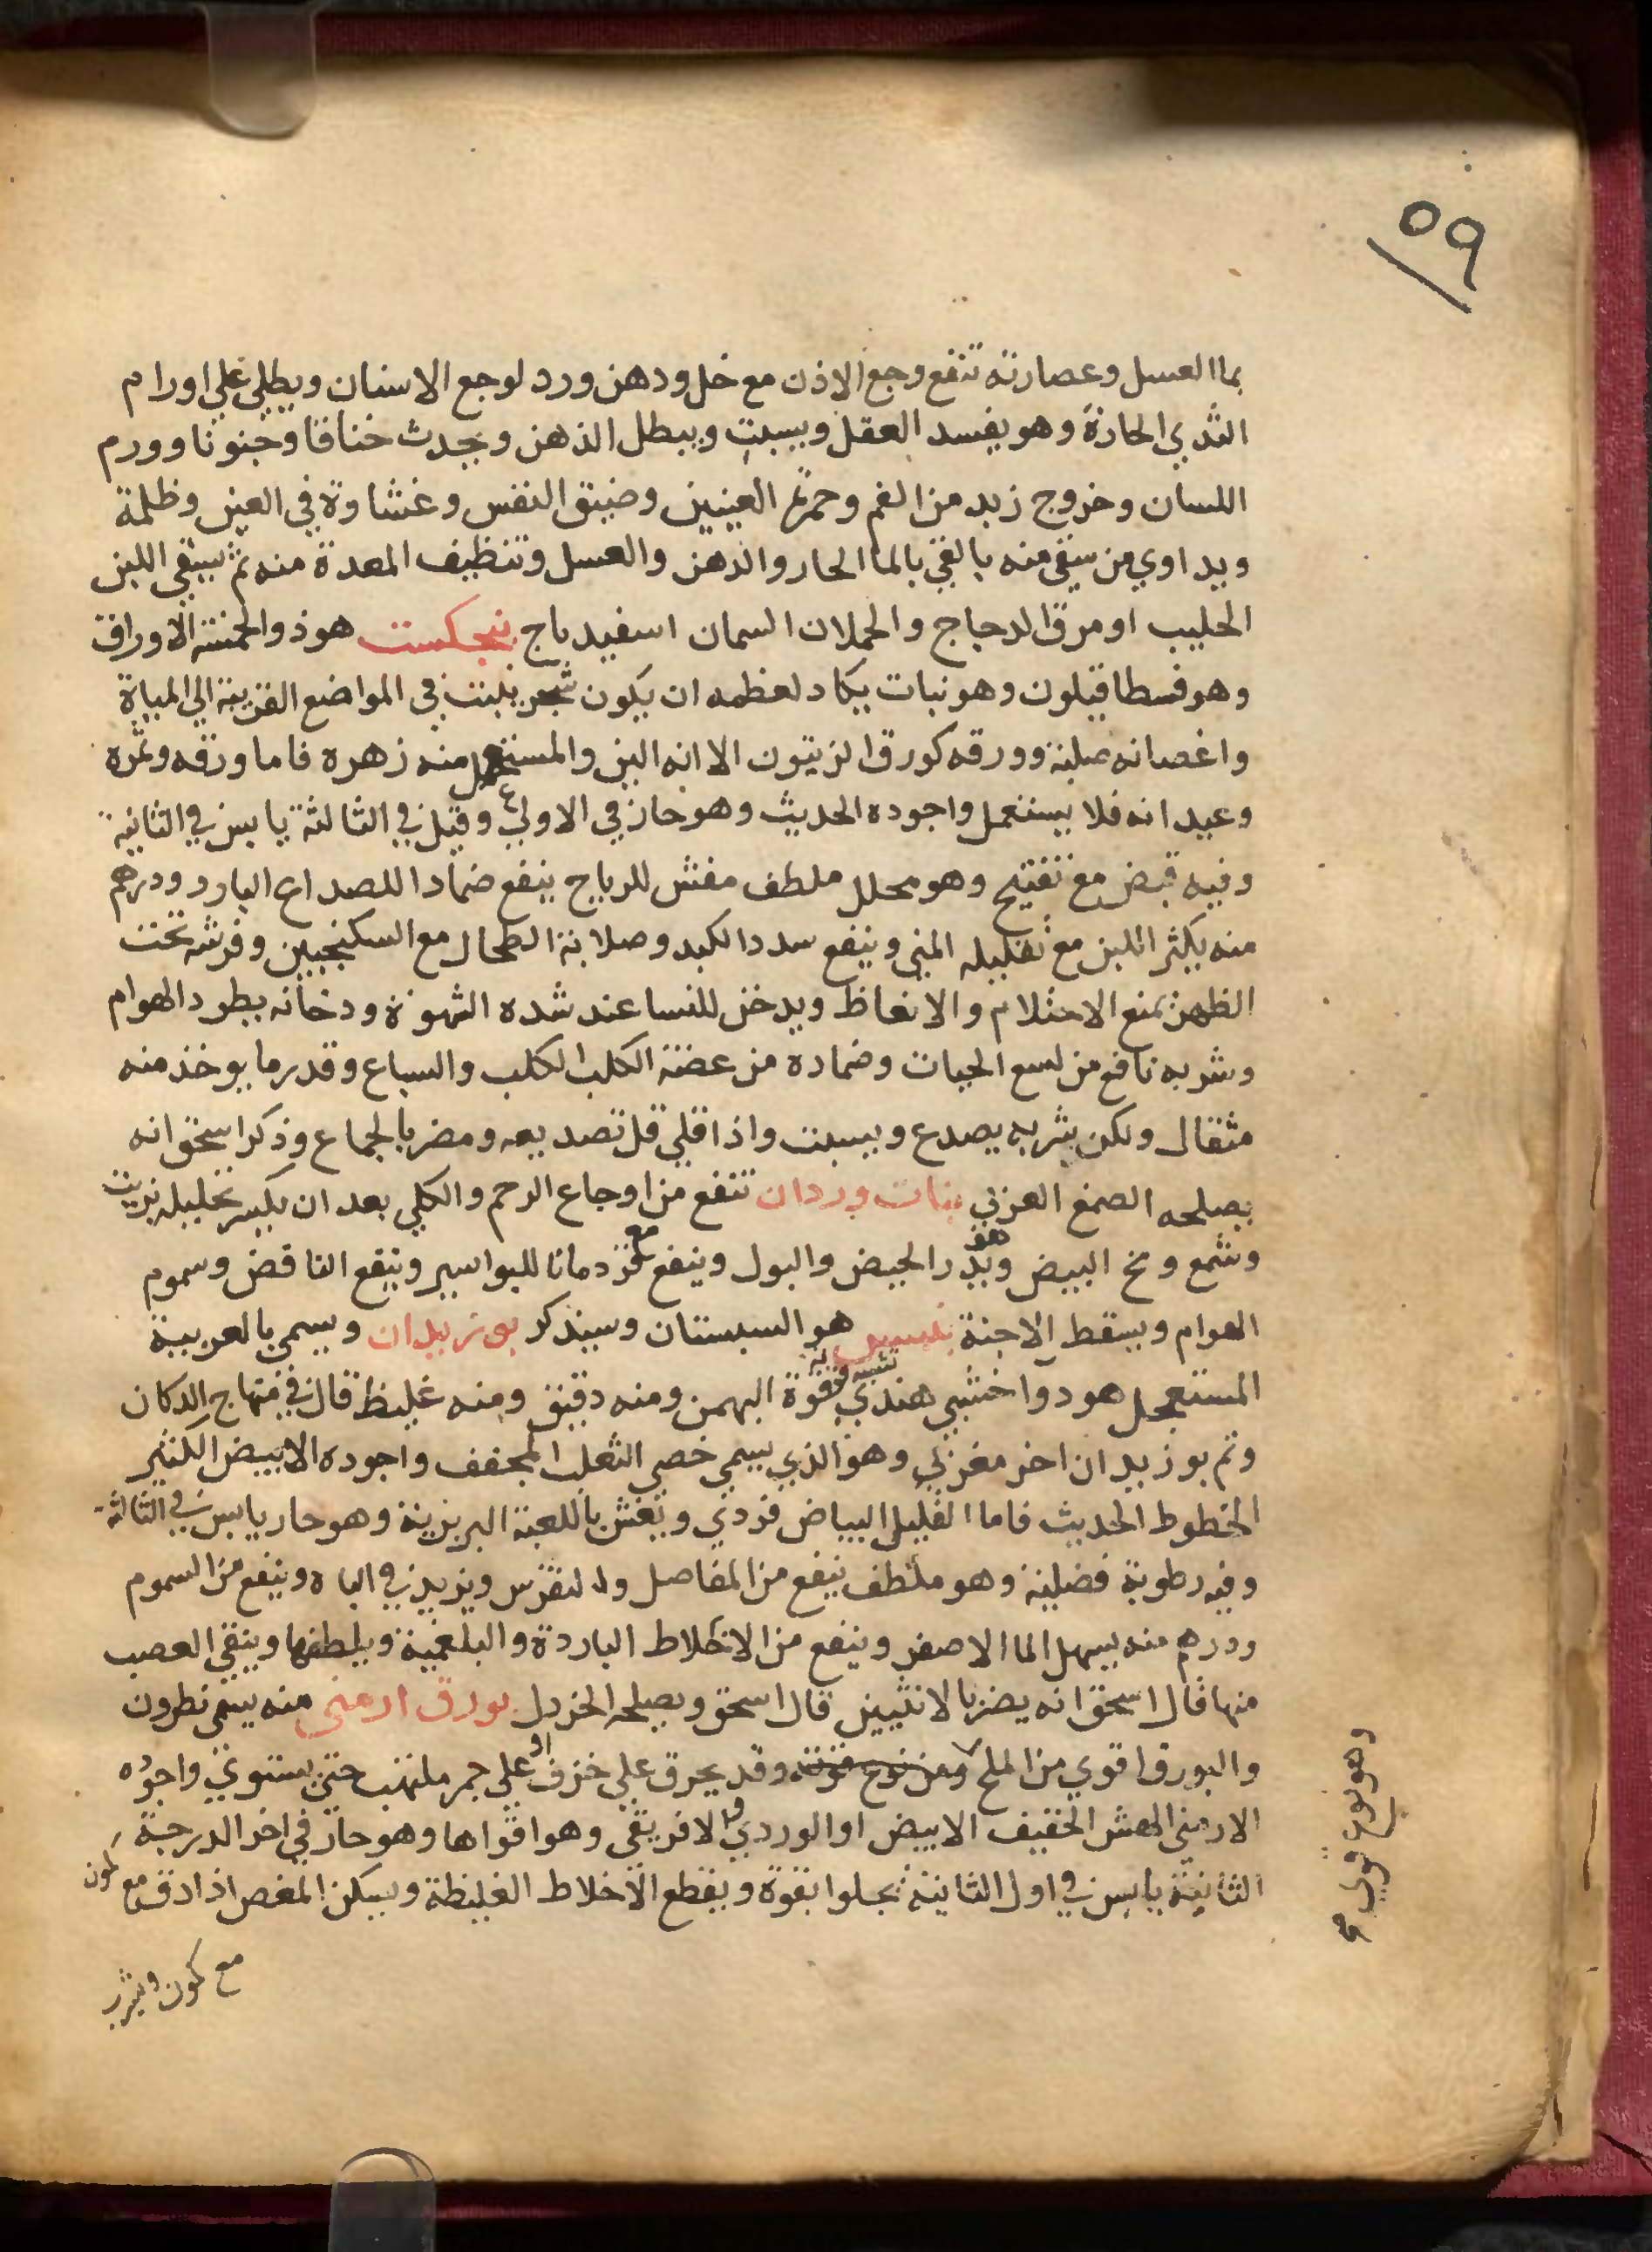 ٥٩
بماالعسل وعصارته تنفع وجع الاذن مع خل ودهن ورد لوجع الاسنان ويطلي علي اورام
الثدي الحارة وهو يفسد العقل ويسبت ويبطل الذهن ويحدث خناقا وجنونا وورم
اللسان وخروج زبد من الفم وحمرة العينين وضيق النفس وغشاوة في العين وظلمة
ويداوي من سقي منه بالقي بالما الحار والدهن والعسل وتنظيف المعدة منه ثم يسقي اللبن
الحليب او مرق الدجاج والحملان السمان اسفيدباج بنجكست هو ذو الخمسة الاوراق
وهو فسطاقيلون وهو نبات يكاد لعظمه ان يكون شجر ينبت في المواضع القريبة الي المياة
واغصانه صلبة وورقه كورق الزيتون الا انه الين والمستعمل منه زهره فاما ورقه وثمره
وعيدانه فلا يستعمل واجوده الحديث وهو حار في الاولي وقيل في الثالثة يابس في الثانية
وفيه قبض مع تفتيح وهو محلل ملطف مفش للرياح ينفع ضمادا للصداع البارد ودرهم
منه يكثر اللبن مع تقليله المني وينفع سدد الكبد وصلابة الطحال مع السكنجبين وفرشه تحت
الظهر يمنع الاحتلام والانعاظ ويدخن للنسا عند شده الشهوة ودخانه يطرد الهوام
وشربه نافع من لسع الحيات وضماده من عضة الكلب الكلب والسباع وقدر ما يوخذ منه
مثقال ولكن شربه يصدع ويسبت واذا قلي قل تصديعه ومضر بالجماع وذكر اسحق انه
يصلحه الصمغ العربي بنات وردان تنفع من اوجاع الرحم والكلي بعد ان يكسر بخليله بزيت
وشمع ومخ البيض وهو يدر الحيض والبول وينفع مع قردمانا للبواسير وينفع النافض وسموم
الهوام ويسقط الاجنة هو السبستان وسيذكر بوزيدان ويسمي بالعربية
المستعجل هو دوا خشبي هندي شبيه به وقوة قوة البهمن ومنه دقيق ومنه غليظ قال في منهاج الدكان
وثم بوزيدان اخر مغربي وهو الذي يسمي خصي الثعلب المجفف واجوده الابيض الكثير
الخطوط الحديث فاما القليل البياض فردي ويغش باللعبة البربرية وهو حار يابس في الثالثة
وفيه رطوبة فضلية وهو ملطف ينفع من المفاصل والنقرس ويزيد في الباه وينفع من السموم
ودرهم منه يسهل الما الاصفر وينفع من الاخلاط الباردة والبلغمية ويلطفها وينقي العصب
منها قال اسحق انه يضر بالانثيين قال اسحق ويصلحه الخردل بورق ارمني منه يسمي نطرون
والبورق اقوي من الملح ومن نوع قوته وقد يحرق علي خزف او علي جمر ملتهب حتي يستوي واجوده
الارمني الهش الخفيف الابيض او الوردي والافريقي وهو اقواها وهو حار في اخر الدرجة
الثانية يابس في اول الثانية يجلوا بقوة ويقطع الاخلاط الغليظة ويسكن المغص اذا دق مع كمون
مع كمون وشرب
وهو نوع قوي